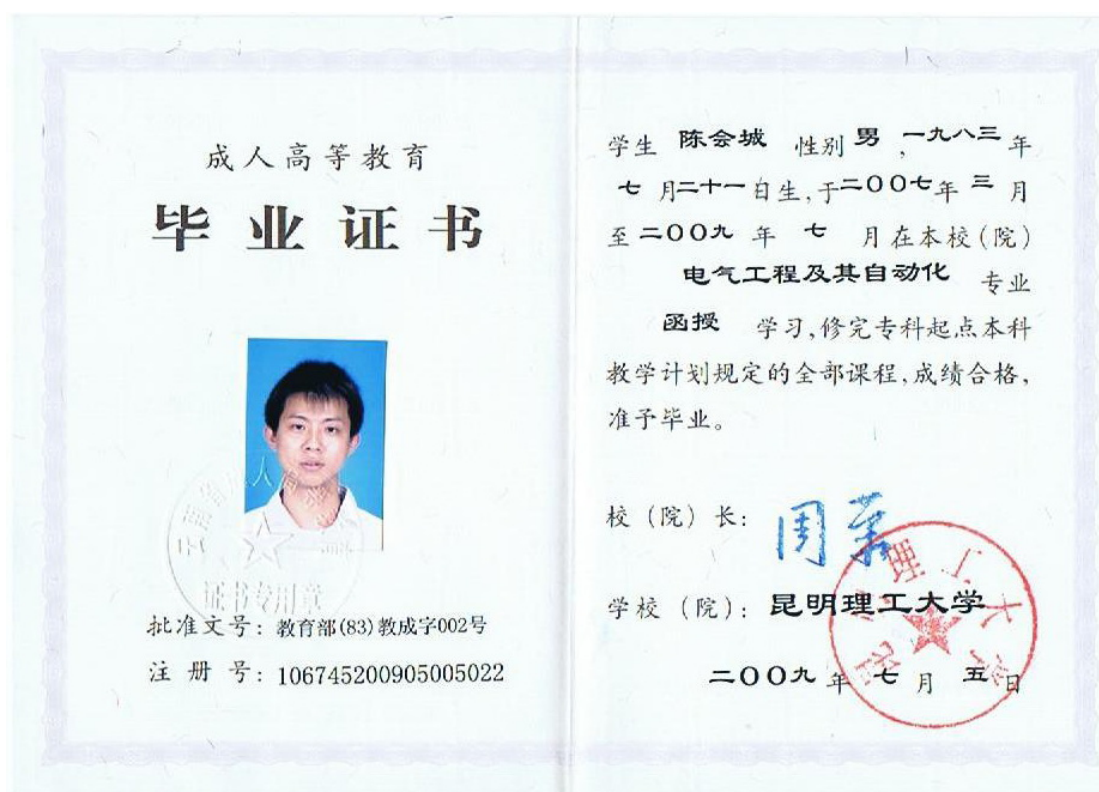 成人高等教育
毕业证书
云南省成人高
证书专用章
批准文号：教育部(83)教成字002号
注册号：106745200905005022
学生 陈会城 性别 男，一九八三年
七月二十一日生，于二〇〇七年三月
至二〇〇九年七月在本校(院)
电气工程及其自动化 专业
函授 学习，修完专科起点本科
教学计划规定的全部课程，成绩合格，
准予毕业。
校（院）长：周荣
学校（院）：昆明理工大学
昆明理工大学
二〇〇九年七月五日